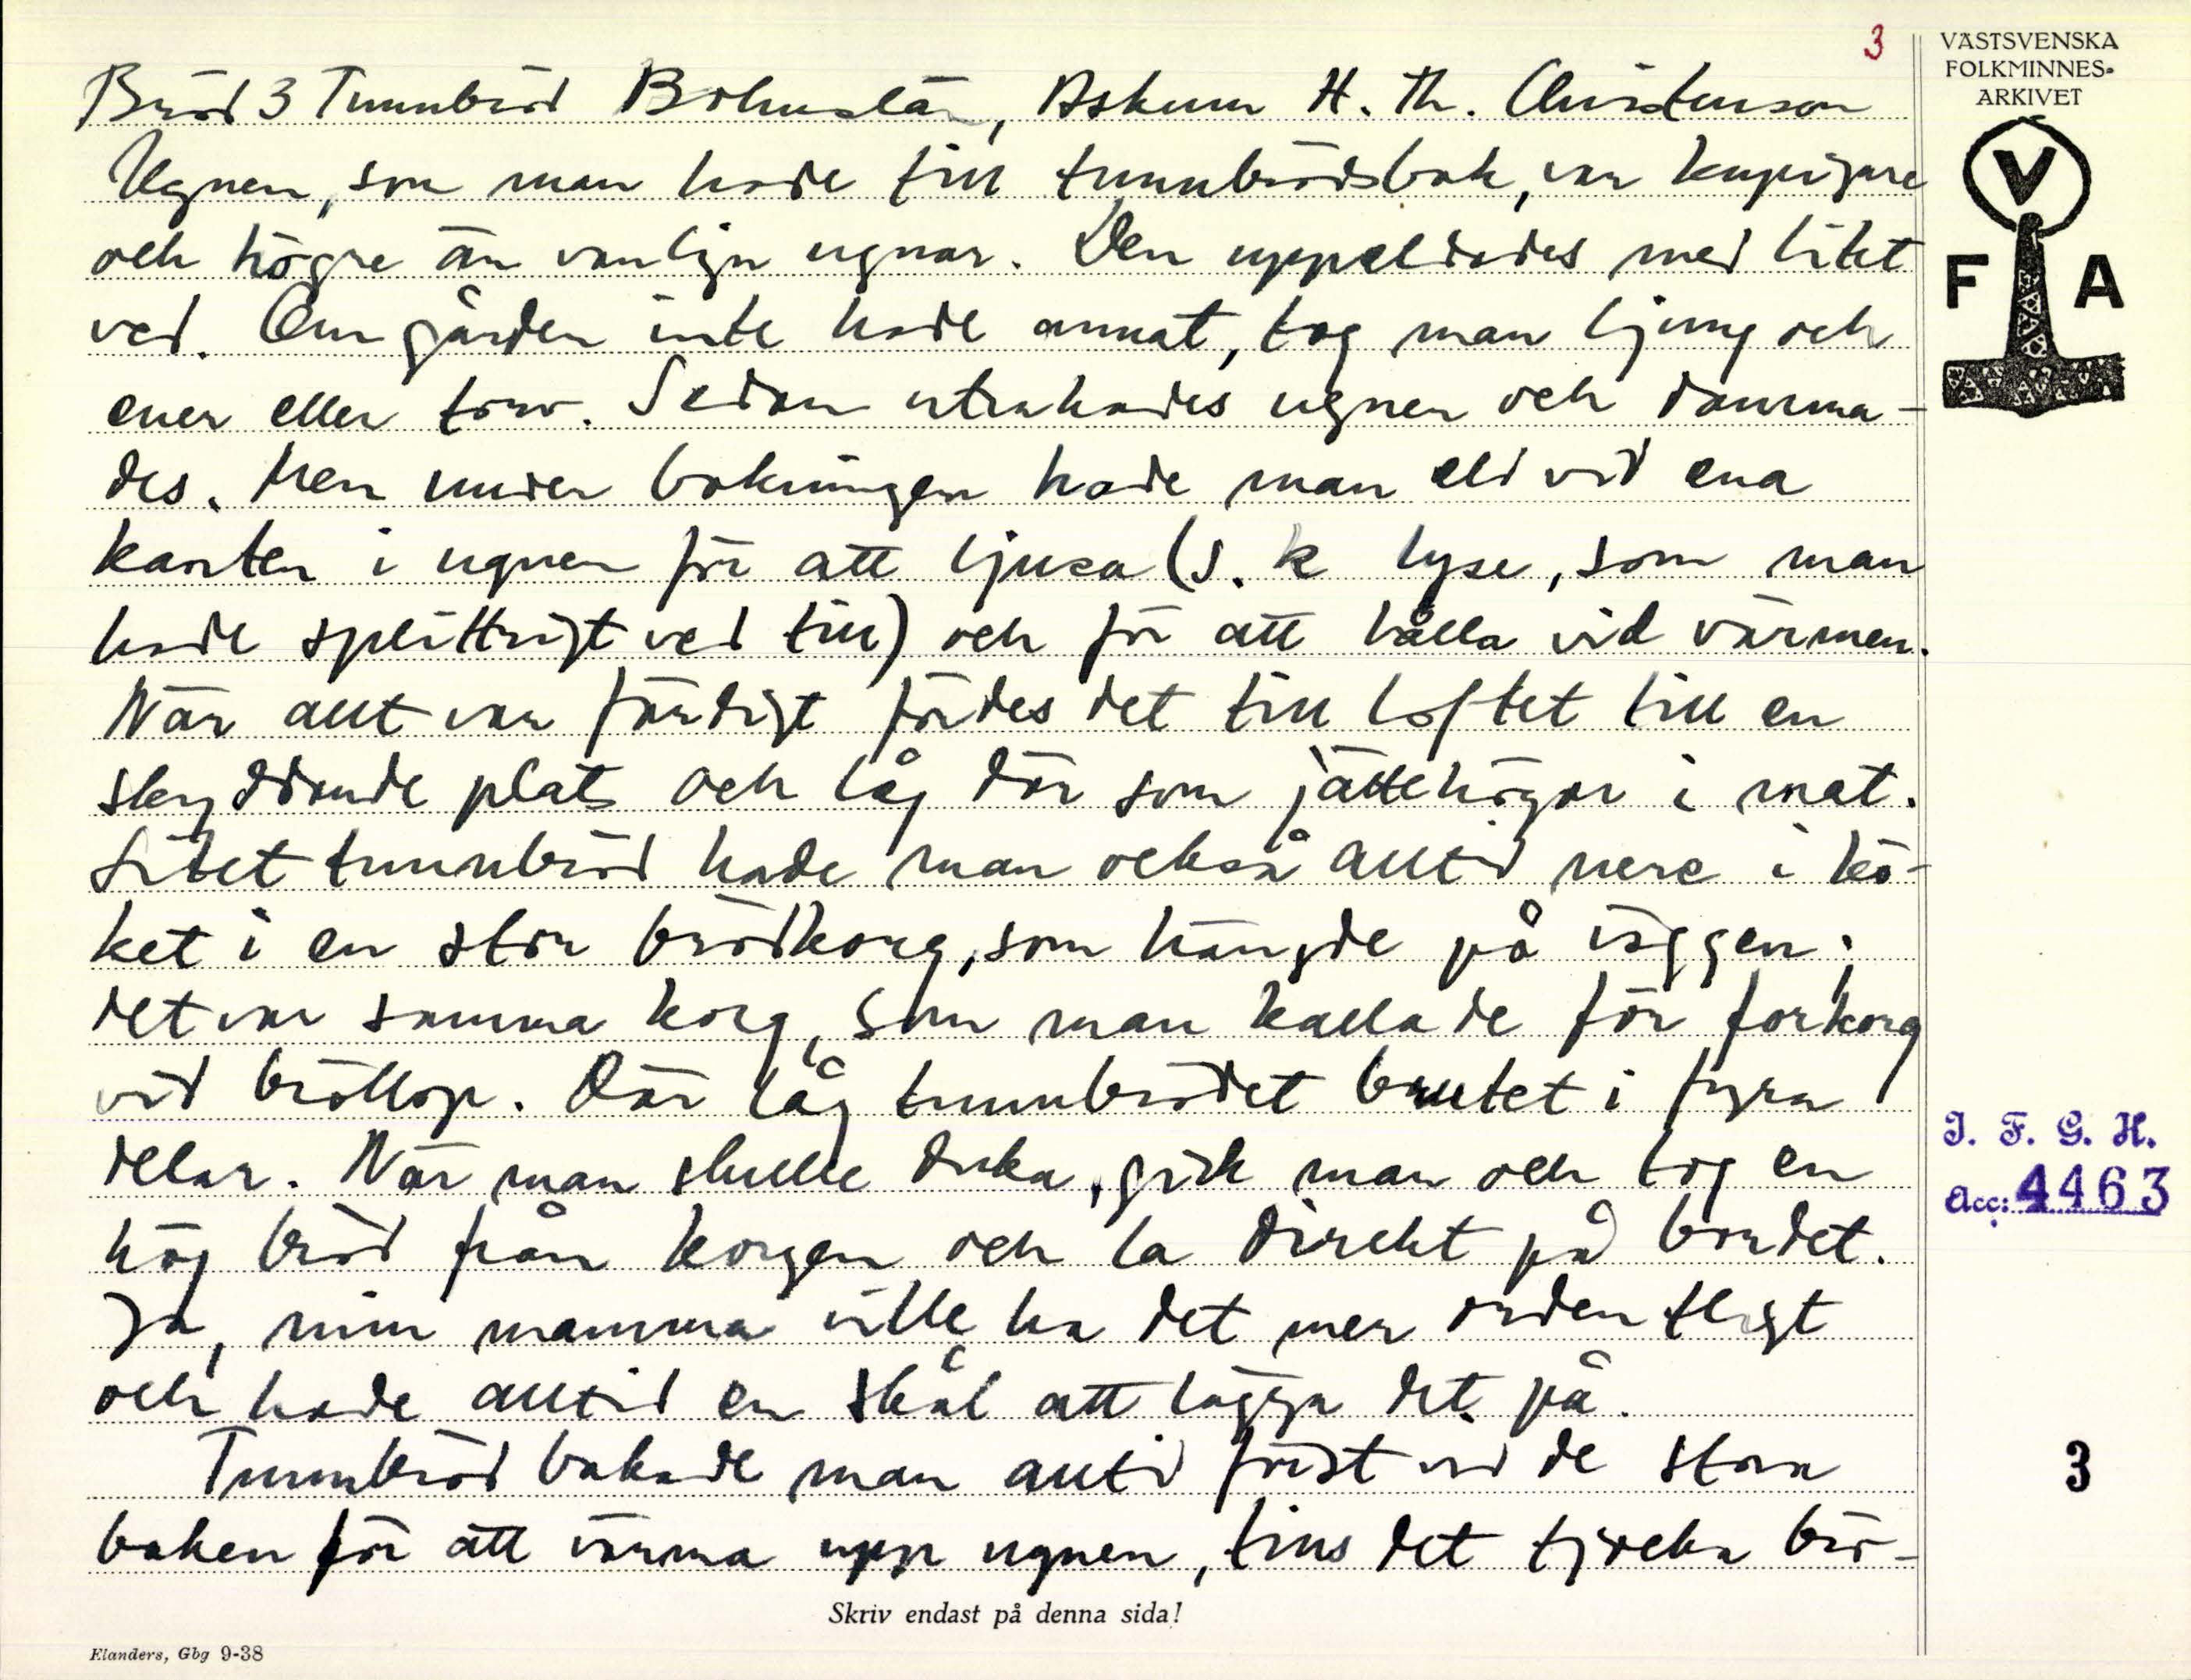 3
Bröd 3 Tunnbröd Bohuslän, Askum H. Th. Christenson
Ugnen, som man hade till tunnbrödsbak, var kupigare
och högre än vanliga ugnar. Den uppeldades med litet
ved. Om gården inte hade annat, tog man ljung och
ener eller torv. Sedan utrakades ugnen och damma-
des. Men under bakningen hade man eld vid ena
kanten i ugnen för att ljusa (s. k lyse, som man
hade splittrigt ved till) och för att hålla vid värmen.
När allt var färdigt fördes det till loftet till en
skyddande plats och låg där som jättehögar i mat.
Litet tunnbröd hade man också alltid nere i kö-
ket i en stor brödkorg, som hängde på väggen;
det var samma korg, som man kallade för forkorg
vid bröllop. Där låg tunnbrödet brutet i fyra
delar. När man skulle duka, gick man och tog en
hög bröd från korgen och la direkt på bordet.
Ja, min mamma ville ha det mer ordentligt
och hade alltid en skål att lägga det på.
Tunnbröd bakade man alltid först vid de stora
baken för att värma upp ugnen, tins det tjocka brö-
Skriv endast på denna sida!
Elanders, Gbg 9-38
VÄSTSVENSKA
FOLKMINNES-
ARKIVET
V
F A
I. F. G. H.
Acc: 4463
3